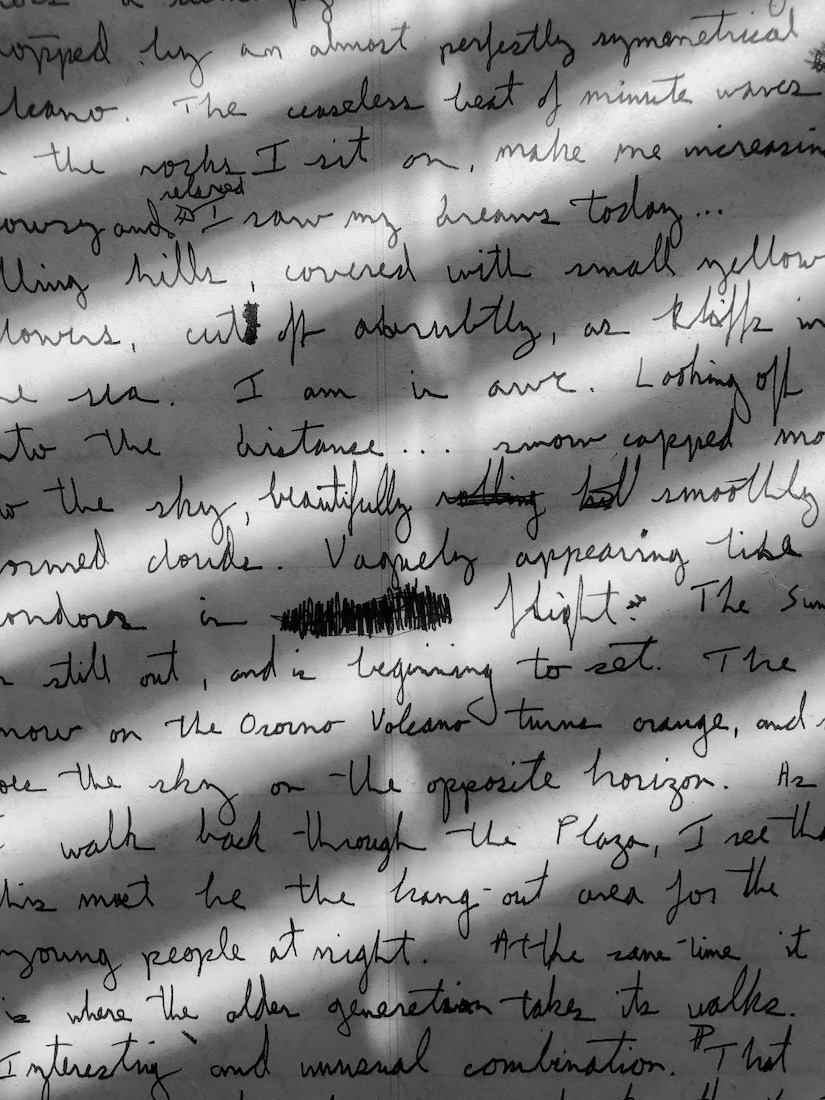 topped by an almost perfectly symmetrical
lcano. The ceaseless beat of minute waves
the rocks I sit on, make me increasin
relaxed
owsy and ¶ I saw my dreams today...
lling hills, covered with small yellow
lowers, cut off abrubtly, as kliffs in
he sea. I am in awe. Looking off
nto the distance.... snow capped mo
the sky, beautifully rolling smoothly
ormed clouds. Vaguely appearing like
ondors in flight. The Sun
still out, and is beginning to set. The
now on the Osorno Volcano turns orange, and
oes the sky on the opposite horizon. As
I walk back through the Plaza, I see tha
his must be the hang-out area for the
young people at night. At the same time it
is where the older generation takes its walks.
Interesting and unusual combination. ¶ That